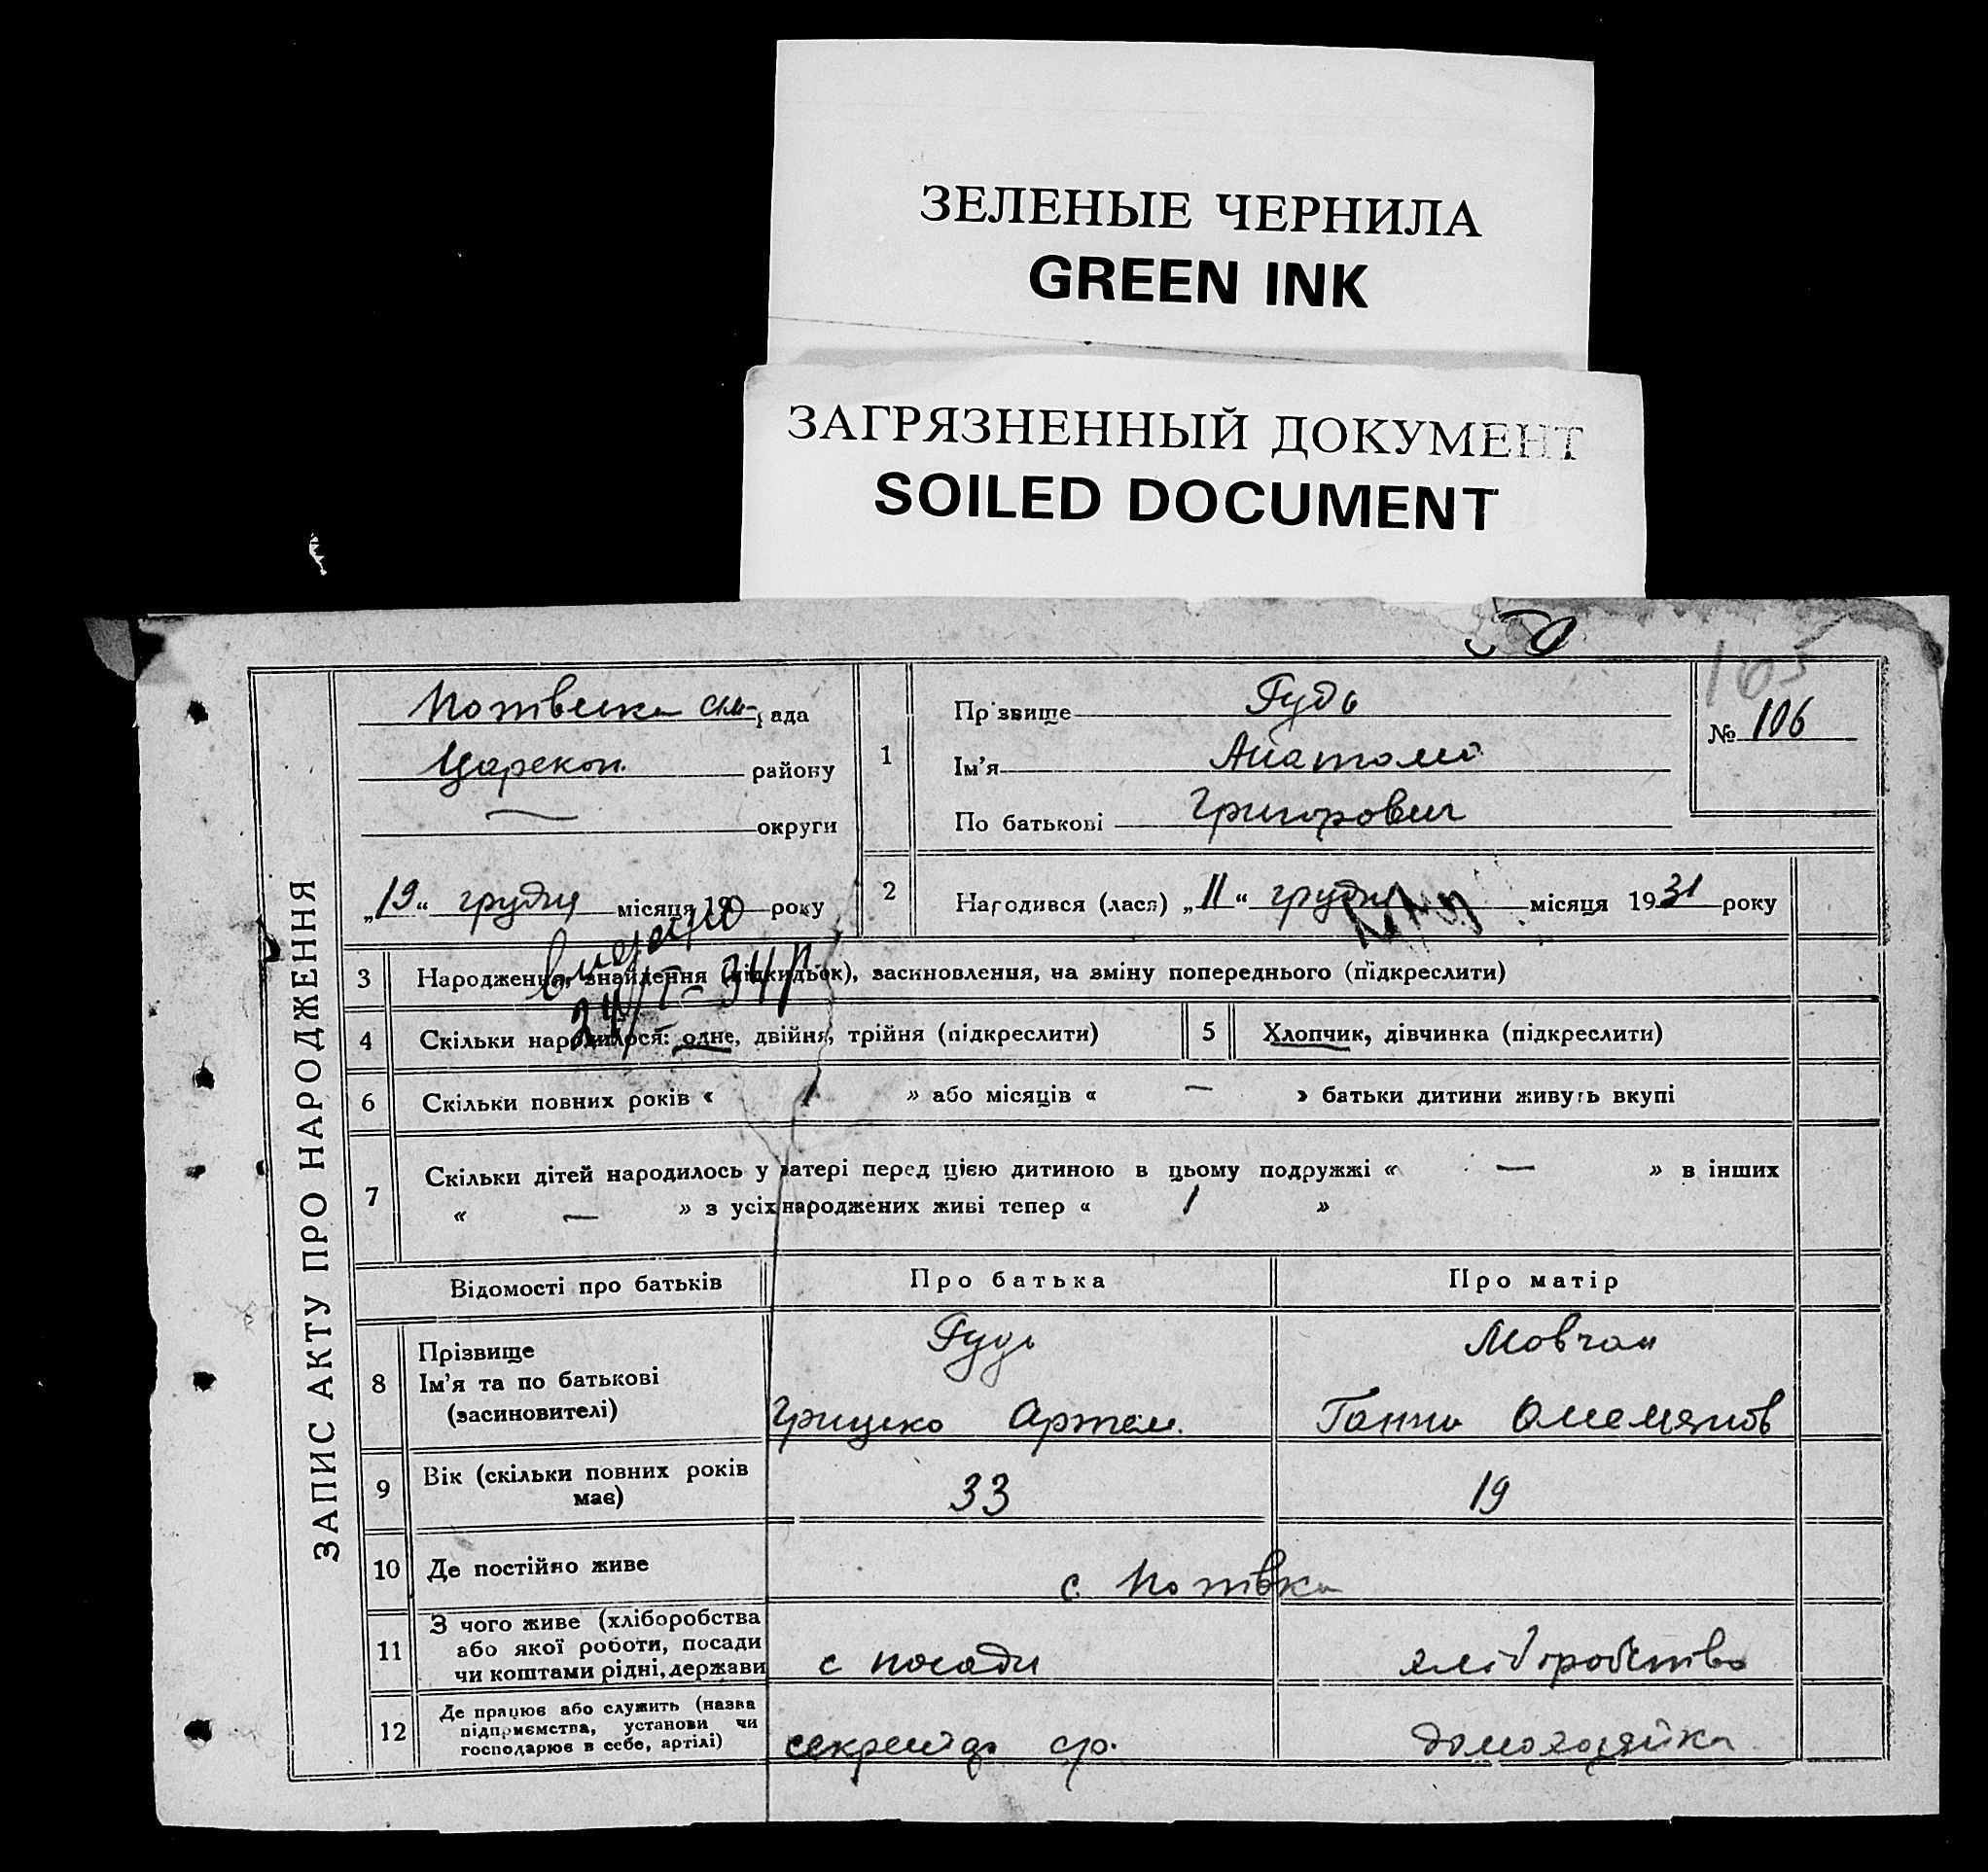 ЗЕЛЕНЫЕ ЧЕРНИЛА
GREEN INK
ЗАГРЯЗНЕННЫЙ ДОКУМЕНТ
SOILED DOCUMENT
ЗАПИС АКТУ ПРО НАРОДЖЕННЯ
рада
Царекон. району
— округи
„19“ грудня місяця 19 року
1
Прізвище Гудь
Ім'я Анатолій
По батькові Григорович
165
№ 106
2 Народився (лася) „11“ грудня місяця 1931 року
видано
3 Народження, знайдення (підкидьок), засиновлення, на зміну попереднього (підкреслити)
4 Скільки народилося: одне, двійня, трійня (підкреслити)
5 Хлопчик, дівчинка (підкреслити)
6 Скільки повних років « 1 » або місяців « — » батьки дитини живуть вкупі
7 Скільки дітей народилось у матері перед цією дитиною в цьому подружжі « — » в інших
« — » з усіх народжених живі тепер « 1 »
Відомості про батьків Про батька Про матір
8 Прізвище Гудь Мовчан
Ім'я та по батькові
(засиновителі) Грицько Артем. Ганна
9 Вік (скільки повних років має) 33 19
10 Де постійно живе с. Потівка
11 З чого живе (хліборобства
або якої роботи, посади
чи коштами рідні, держави с посади хліборобство
12 Де працює або служить (назва
підприємства, установи чи
господарює в себе, артілі) секретар с/р. домохозяйка